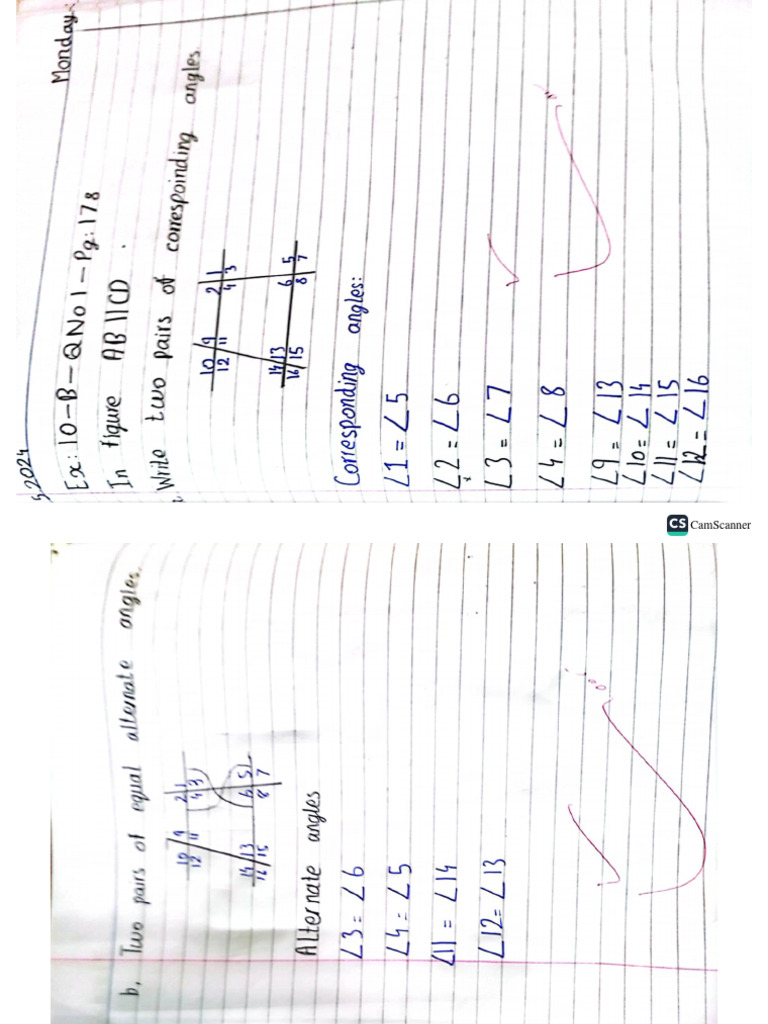 5.2024
Monday:
Ex: 10-B-QNo1-Pg:178
In figure AB||CD.
Write two pairs of correspoinding angles.
10 9 2 1
12 11 4 3
14 13 6 5
16 15 8 7
Corresponding angles:
∠1 = ∠5
∠2 = ∠6
∠3 = ∠7
∠4 = ∠8
∠9 = ∠13
∠10 = ∠14
∠11 = ∠15
∠12 = ∠16
CS CamScanner
b. Two pairs of equal alternate angles.
10 9 2 1
12 11 4 3
14 13 6 5
16 15 8 7
Alternate angles
∠3 = ∠6
∠4 = ∠5
∠11 = ∠14
∠12 = ∠13